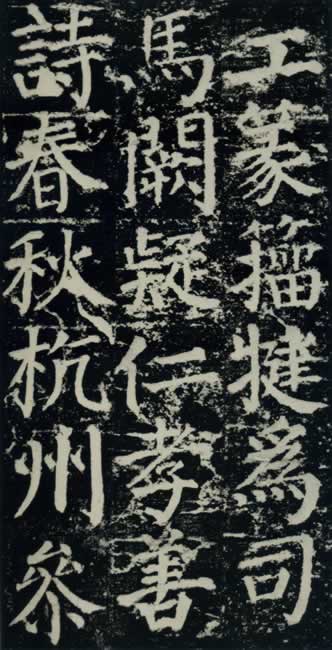 工篆籀犍為司
馬闕疑仁孝善
詩春秋杭州參